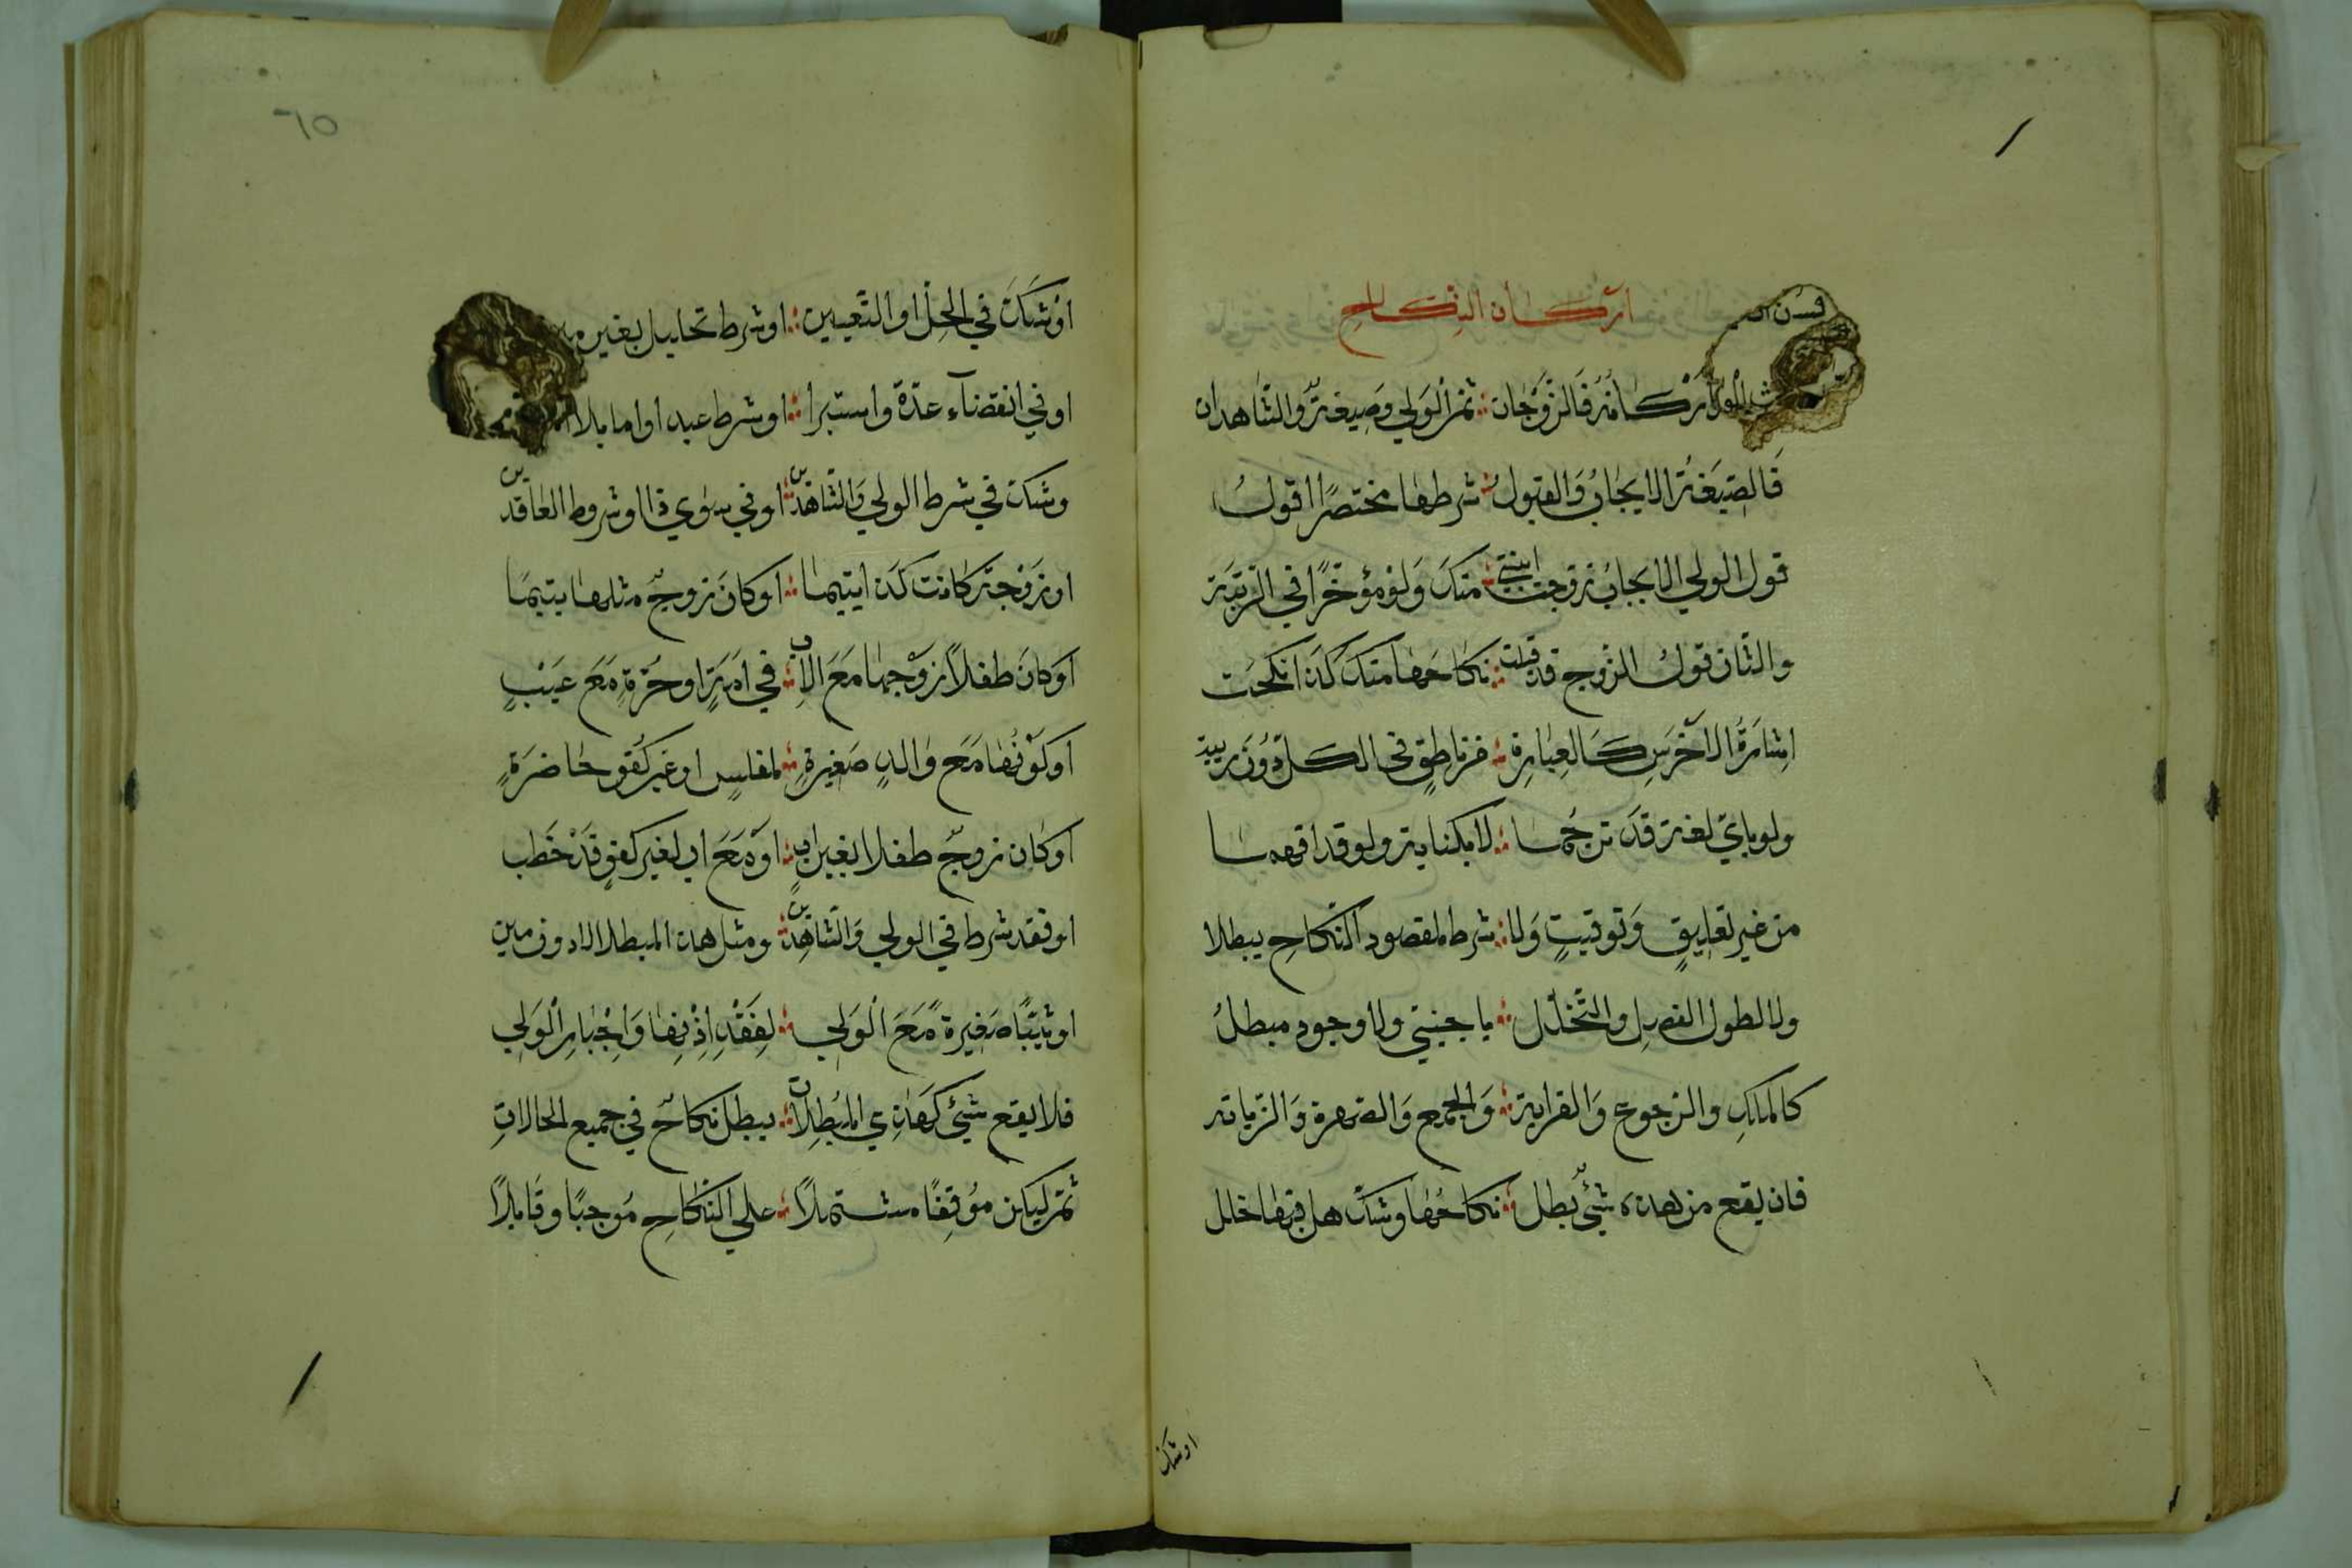 اركان النكاح
اركانه فالزوجان ؞ ثم الولي وصيغة والشاهدان
فالصيغة الايجاب والقبول ؞ شرطها مختصرا اقول
قول الولي الايجاب زوجت ابنتي ؞ منك ولو مؤخرا في الرتبة
والثان قول الزوج قد قبلت ؞ نكاحها منك كذا نكحت
اشارة الاخرس كالعبارة ؞ من ناطق في الكل دون ريبة
ولو باي لغة قد ترجما ؞ لا بكناية ولو قد افهما
من غير تعليق وتوقيت ولا ؞ شرط لمقصود النكاح يبطلا
ولا لطول الفصل والتخلل ؞ باجنبتي ولا وجود مبطل
كالملك والرجوع والقرابة ؞ والجمع والصهرة والزيادة
فان يقع من هذه شيئ بطل ؞ نكاحها وشك هل فيها خلل
اوشك
٦٥
اوشك في الحل او التعيين ؞ او شرط تحليل بغير
اوفي انقضآء عدة واستبرا ؞ او شرط عبد او اما بلا
وشك في شرط الولي والشاهدين ؞ اوفي سوي ذا او شروط العاقدين
او زوجة كانت كذا يتيما ؞ او كان زوج مثلها يتيما
او كان طفلا زوجها مع الاب ؞ في امة او حرة مع عيب
او كونها مع والد صغيرة ؞ لمفلس او غير كفو حاضرة
او كان زوج طفلا بغير اب ؞ او مع اب لغير كفو قد خطب
او فقد شرط في الولي والشاهدين ؞ ومثل هذا المبطلا الا دون مين
او ثيبا صغيرة مع الولي ؞ لفقد اذنها واجبار الولي
فلا يقع شيئ كهذي المبطلات ؞ يبطل نكاح في جميع الحالات
ثم ليكن موقفا مشتملا ؞ علي النكاح موجبا وقابلا